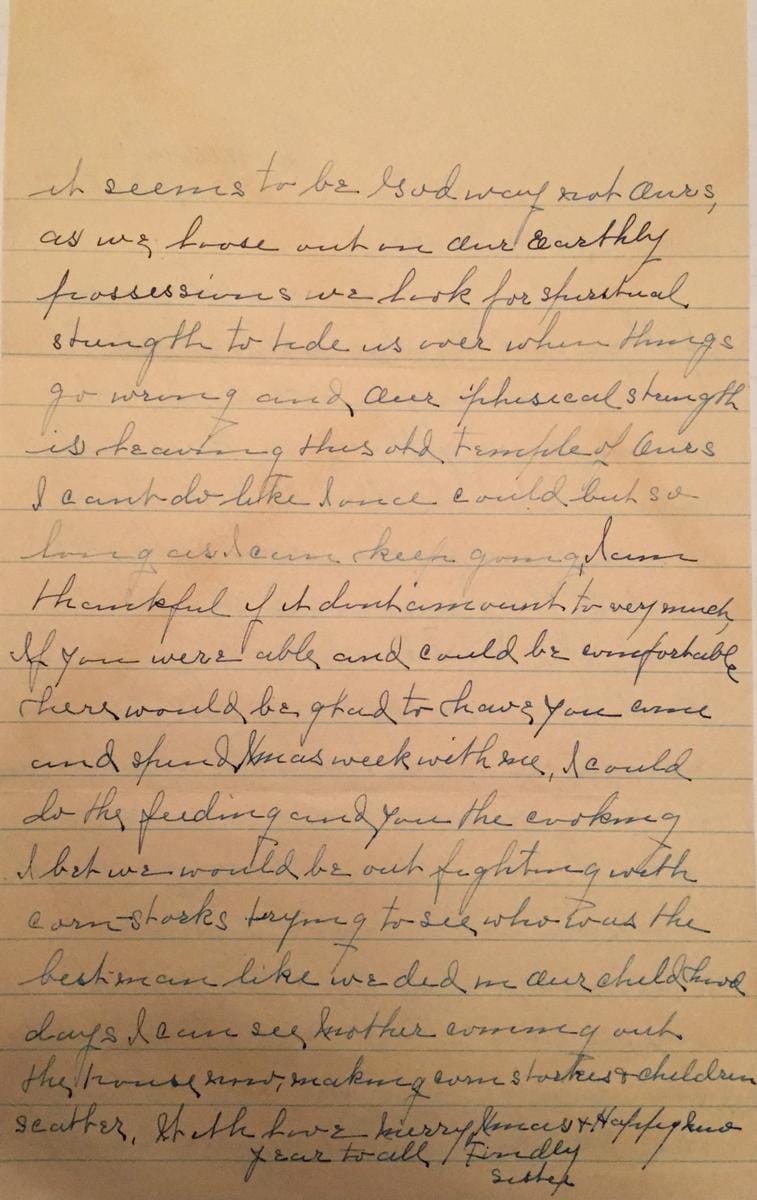 it seems to be God way not ours,
as we loose out on our Earthly
possessions we look for spirstual
strength to tide us over when things
go wrong and our phisical strength
is leaving this old temple of ours
I cant do like I once could but so
long as I can keep going, I am
thankful if it dont amount to very much,
If you were able and could be comfortable
here would be glad to have you come
and spend Xmas week with me, I could
do the feeding and you the cooking
I bet we would be out fighting with
corn-storks trying to see who was the
best man like we did in our childhood
days I can see Mother coming out
the house now, making corn storkes & children
scatter. With love Merry Xmas & Happy New
year to all
Sister